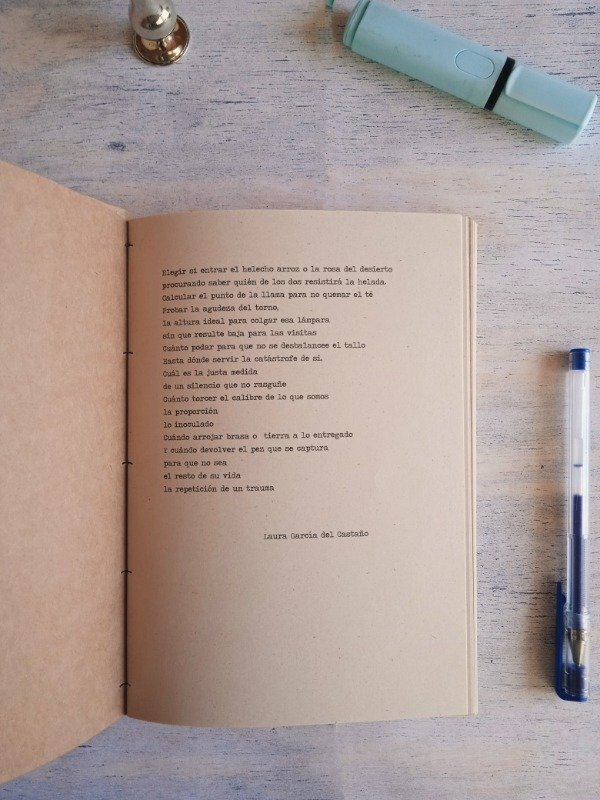 Elegir si entrar el helecho arroz o la rosa del desierto
procurando saber quién de los dos resistirá la helada.
Calcular el punto de la llama para no quemar el té
Probar la agudeza del torno,
la altura ideal para colgar esa lámpara
sin que resulte baja para las visitas
Cuánto podar para que no se desbalancee el tallo
Hasta dónde servir la catástrofe de sí.
Cuál es la justa medida
de un silencio que no rasguñe
Cuánto torcer el calibre de lo que somos
la proporción
lo inoculado
Cuándo arrojar brasa o tierra a lo entregado
Y cuándo devolver el pez que se captura
para que no sea
el resto de su vida
la repetición de un trauma
Laura García del Castaño